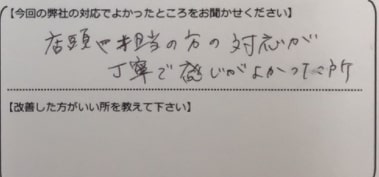 【今回の弊社の対応でよかったところをお聞かせください】
店頭や担当の方の対応が
丁寧で感じがよかった所
【改善した方がいい所を教えて下さい】